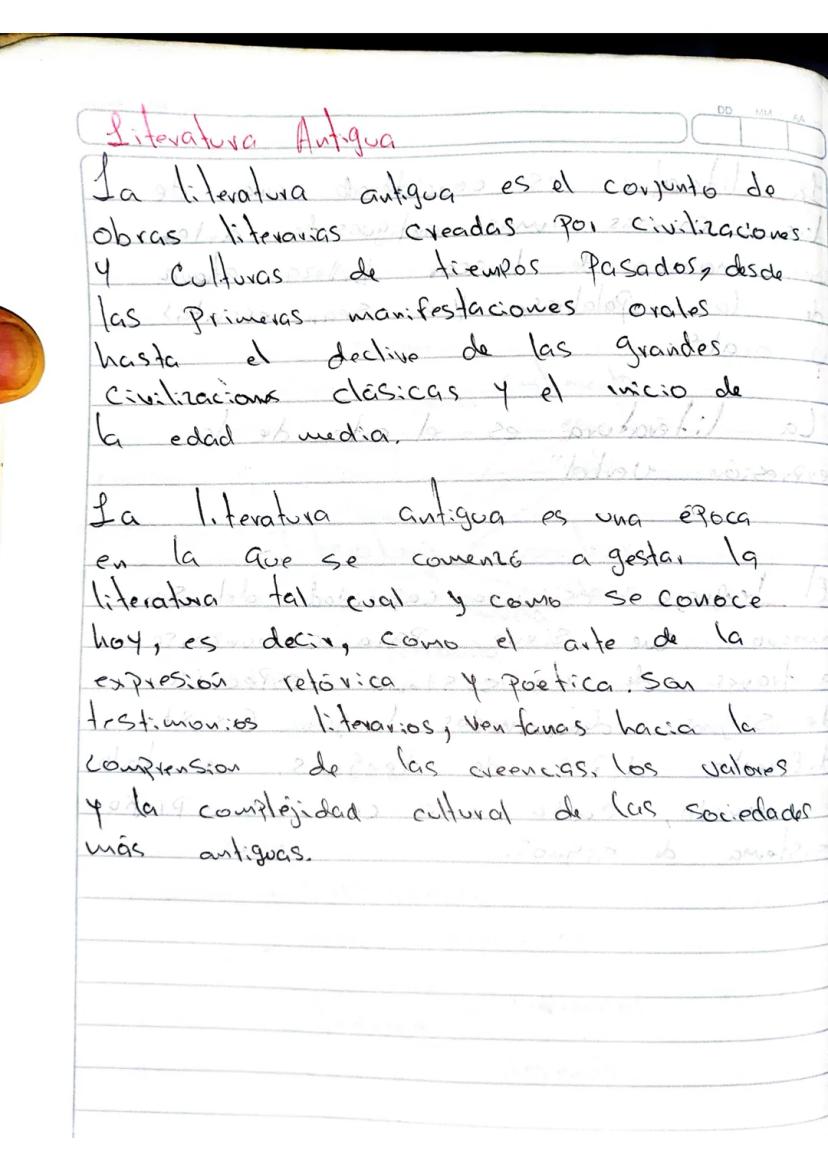 Literatura Antigua
DD MM AA
La literatura antigua es el conjunto de
obras literarias creadas por civilizaciones
y culturas de tiempos pasados, desde
las primeras manifestaciones orales
hasta el declive de las grandes
civilizacions clásicas y el inicio de
la edad media.
La literatura antigua es una época
en la que se comenzó a gestar la
literatura tal cual y como se conoce
hoy, es decir, como el arte de la
expresión retórica y poética. Son
testimonios literarios, ventanas hacia la
comprension de las creencias, los valores
y la complejidad cultural de las sociedades
más antiguas.